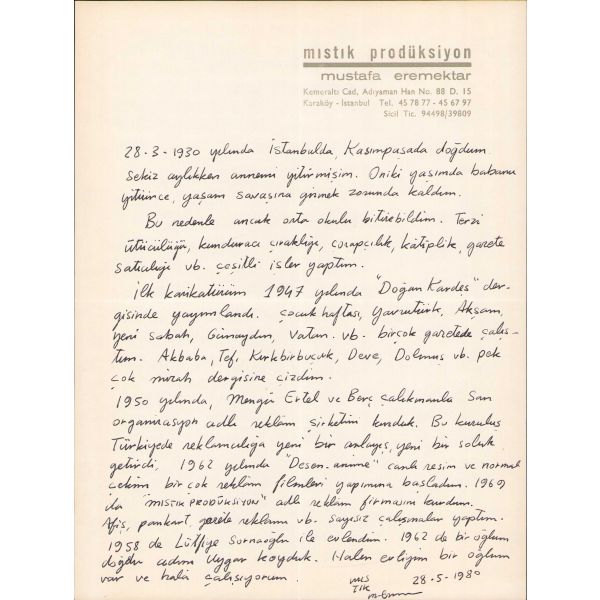 mıstık prodüksiyon
mustafa eremektar
Kemeraltı Cad, Adıyaman Han No. 88 D. 15
Karaköy - İstanbul Tel. 45 78 77 - 45 67 97
Sicil Tic. 94498/39809
28-3-1930 yılında İstanbulda, Kasımpaşada doğdum
Sekiz aylıkken annemi yitirmişim. Oniki yaşımda babamı
yitirince, yaşam savaşına girmek zorunda kaldım.
Bu nedenle ancak orta okulu bitirebildim. Terzi
ütücülüğü, kunduracı çıraklığı, çorapçılık, kâtiplik, gazete
satıcılığı vb. çeşitli işler yaptım.
İlk karikatürüm 1947 yılında "Doğan Kardeş" der-
gisinde yayımlandı. Çocuk haftası, Yavrutürk, Akşam,
yeni sabah, Günaydın, Vatan. vb. birçok gazetede çalış-
tım. Akbaba, Tef, Kırkbirbuçuk, Deve, Dolmuş vb. pek
çok mizah dergisine çizdim.
1950 yılında, Mengü Ertel ve Berç çalıkmanla San
organizasyon adlı reklâm şirketini kurduk. Bu kuruluş
Türkiyede reklamcılığa yeni bir anlayış, yeni bir soluk
getirdi. 1962 yılında "Desen-anime" canlı resim ve normal
çekim bir çok reklâm filmleri yapımına başladım. 1969
da "MISTIK PRODÜKSİYON" adlı reklâm firmasını kurdum.
Afiş, pankart, gazete reklamı vb. sayısız çalışmalar yaptım.
1958 de Lütfiye Sornaoğlu ile evlendim. 1962 de bir oğlum
doğdu adını Uygar koyduk. Halen evliyim bir oğlum
var ve hâlâ çalışıyorum.
MIS
TIK
28-5-1980